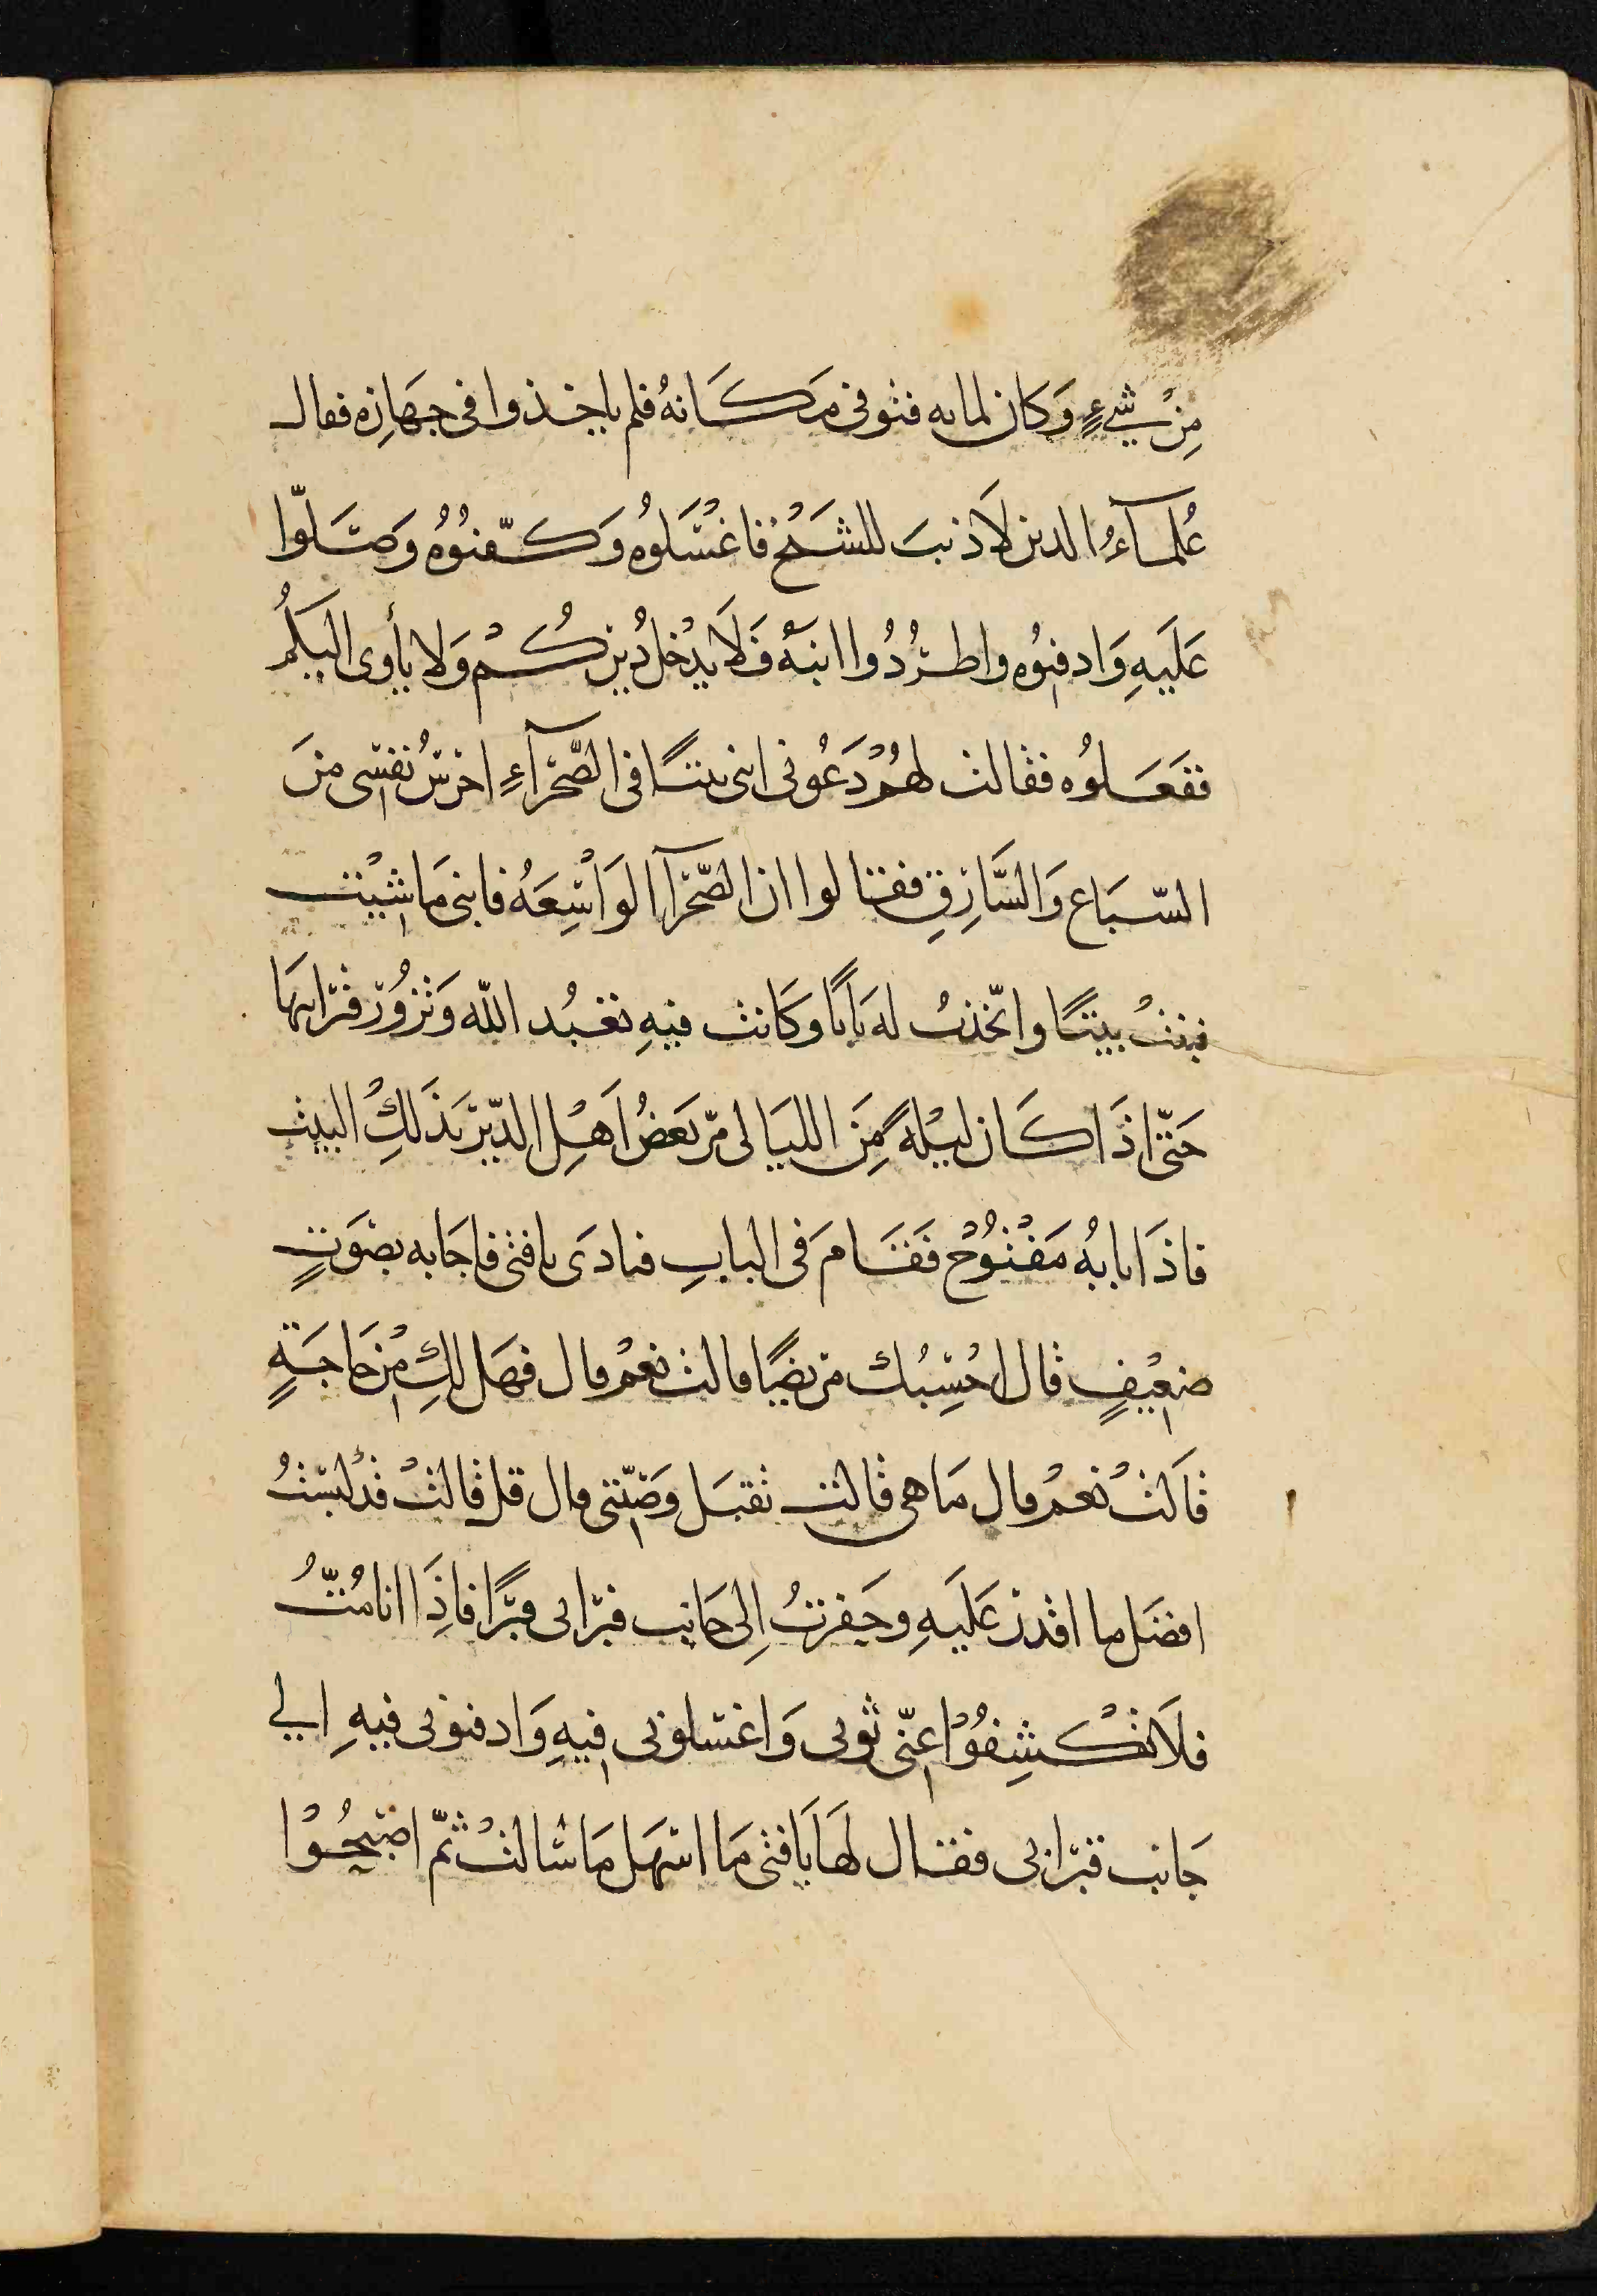 مِنْ شَيْءٍ وَكان لمابه فتوفى مَكَانهُ فلم ياخذوا فى جهَازِه فقال
عُلمآءُ الدين لَا ذنبَ للشَيْخُ فاغْسَلوُه وَكفّنُوُه وَصَلّوا
عَلَيهِ وَادفنوُه واطرُدُوا ابنهُ فَلَا يدْخل دُيرَكُمْ وَلا يأوى اليَكُم
ففَعَلوُه فقالت لهُمْ دَعُونى ابنى بيتًا فى الصّحْرآءِ احْرسُ نفسى منَ
السّبَاع وَالسَّارِقِ فقالوا ان الصّحْرآ الوَاسِعَهُ فابنى مَا شيْت
فبنتْ بيتًا واتّخذتُ له بَابًا وكَانت فيهِ تعْبُد اللّه وَتزُورُ قبْرابيهَا
حَتّى اذَا كَان ليْلةً مِنَ الليَالى مرّ بَعَضُ اَهْلِ الدّيْر بَذَلكِ البيت
فاذَا بابهُ مَفْتُوُحْ فَقَامَ فى البابِ فنادَى يافتى فاجَابه بصَوَتٍ
ضعِيْفٍ قال احْسِبُك مريضًا قالت نعمْ قال فهَل لكِ مِنْ حَاجَةٍ
قاَلتْ نعمْ قال مَا هى قالت تقبَل وَصيّتى قال قل قالتْ قدْ لبستُ
افضَل ما اقدرُ عَلَيهِ وحَفرتُ اِلى جَانب قبْرابى قبرًا فاذِا انا مُتّ
فلَا تكْشِفُوْا عنّى ثوبى وَاغسلونى فيهِ وَادفنونى فيهِ الى
جَانب قبْرابى فقال لهَا يَافتى مَا اسْهَل مَا سْالتْ ثمّ اصْبَحُوْا